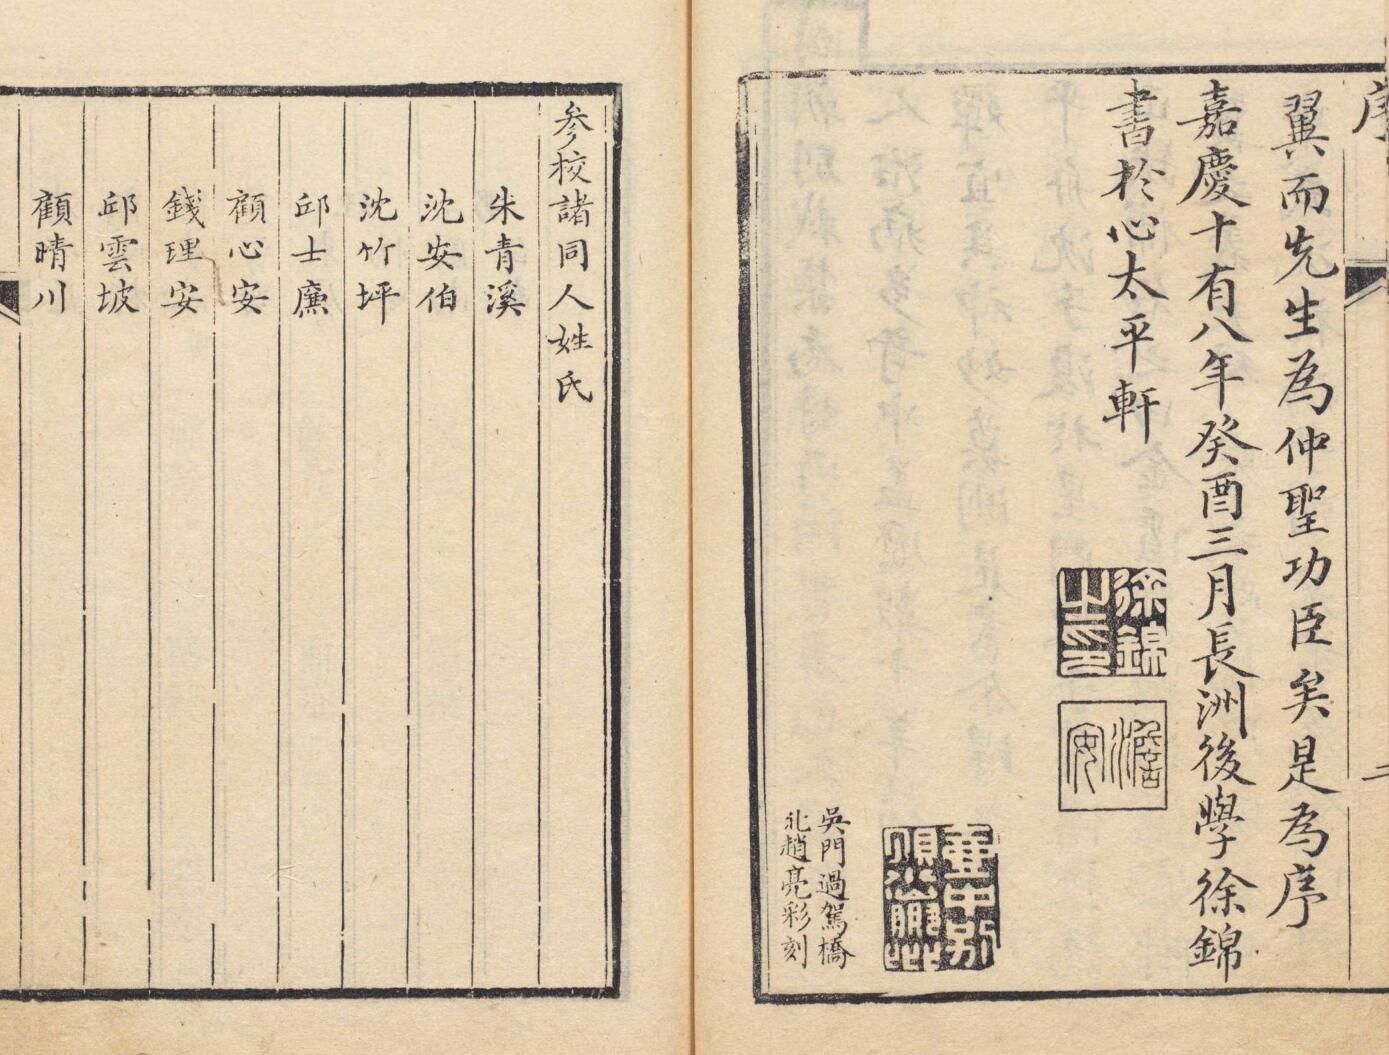 序
翼而先生為仲聖功臣矣是為序
嘉慶十有八年癸酉三月長洲後學徐錦
書於心太平軒
徐錦
之印
澹
安
吳門過駕橋
北趙亮彩刻
参校諸同人姓氏
朱青溪
沈安伯
沈竹坪
邱士廉
顧心安
錢理安
邱雲坡
顧晴川